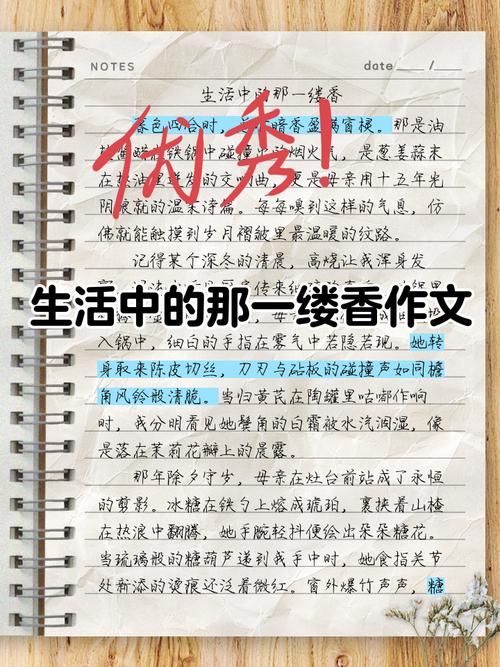 NOTES date / 
生活中的那一缕香
优秀!
色四合时,暗香盈满窗棂。那是油
醋在铁锅中碰撞烟火气,是葱姜蒜末
在热油里迸发的交响曲,更是母亲用十五年光
阴熬就的温柔诗篇。每每嗅到这样的气息,仿
佛就能触摸到岁月褶皱里最温暖的纹路。
记得某个深冬的清晨,高烧让我浑身发
生活中的那一缕香作文
入锅中,细白的手指在雾气中若隐若现。她转
身取来陈皮切丝,刀刃与砧板的碰撞声如同檐
角风铃般清脆。当归黄芪在陶罐里咕嘟作响
时,我分明看见她鬓角的白霜被水汽润湿,像
是落在茉莉花瓣上的晨露。
那年除夕守岁,母亲在灶台前站成了永恒
的剪影。冰糖在铁勺上熔成琥珀,裹挟着山楂
在热浪中翻腾,她手腕轻抖便绘出朵朵糖花。
当琉璃般的糖葫芦递到我手中时,她食指关节
处新添的烫痕还泛着微红。窗外爆竹声声,糖